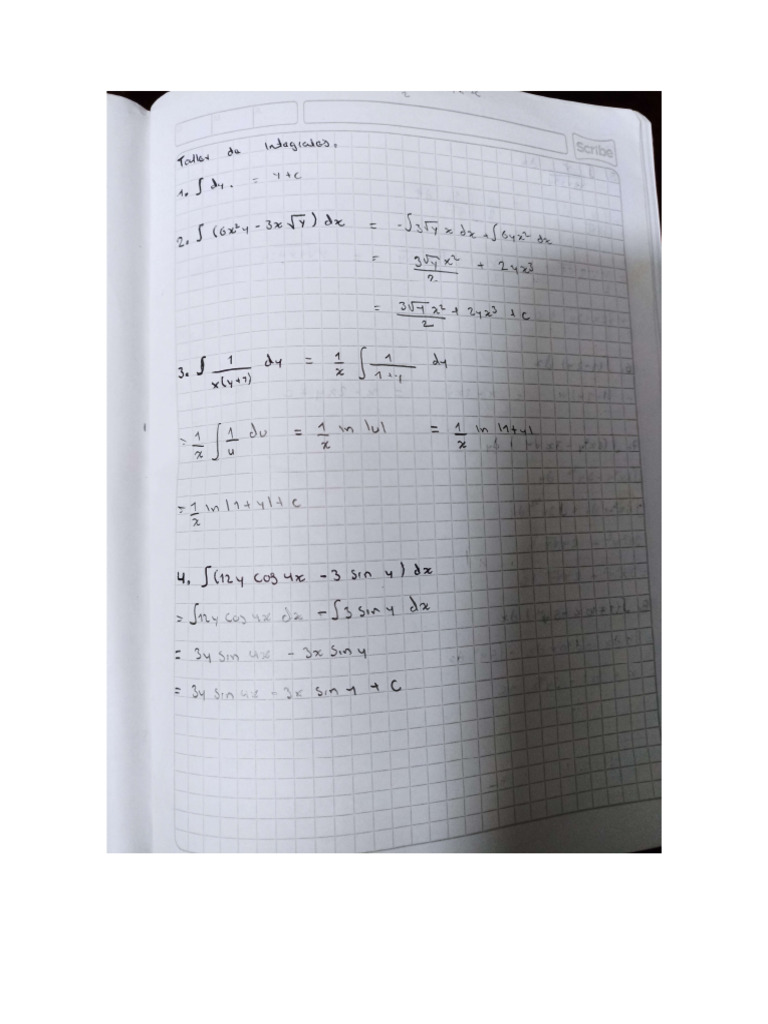 Scribe
Taller de Integrales.
1. ∫ dy. = y + c
2. ∫ (6x²y - 3x √y) dx = - ∫ 3√y x dx + ∫ 6yx² dx
= 3√y x² / 2 + 2yx³
= 3√y x² / 2 + 2yx³ + c
3. ∫ 1 / x(y+1) dy = 1/x ∫ 1 / 1+y dy
= 1/x ∫ 1/u du = 1/x ln |u| = 1/x ln |1+y|
= 1/x ln |1+y| + c
4. ∫ (12y cos 4x - 3 sin y) dx
= ∫ 12y cos 4x dx - ∫ 3 sin y dx
= 3y sin 4x - 3x sin y
= 3y sin 4x - 3x sin y + C